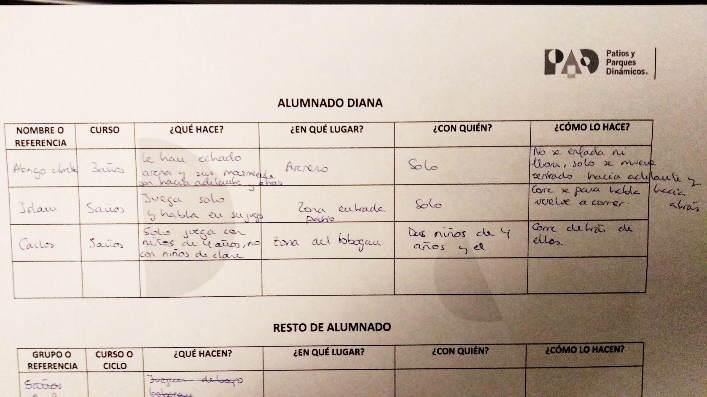 PAD Patios y
Parques
Dinámicos.
ALUMNADO DIANA
NOMBRE O
REFERENCIA
CURSO
¿QUÉ HACE?
¿EN QUÉ LUGAR?
¿CON QUIÉN?
¿CÓMO LO HACE?
Abrigo
3años
Le han echado
arena y sus
son hacia adelante y atrás
Arenero
Solo
No se enfada ni
llora, solo se mueve
sentado hacia adelante y
hacia
atrás
5años
Juega solo
y habla en su juego
Zona entrada
Patio
Solo
Corre se para habla
vuelve a correr
Carlos
5años
Solo juega con
niños de 4 años, no
con niños de clase
Zona del tobogan
Dos niños de 4
años y el
Corre detrás de
ellos.
RESTO DE ALUMNADO
GRUPO O
REFERENCIA
CURSO O
CICLO
¿QUÉ HACEN?
¿EN QUÉ LUGAR?
¿CON QUIÉN?
¿CÓMO LO HACEN?
5años